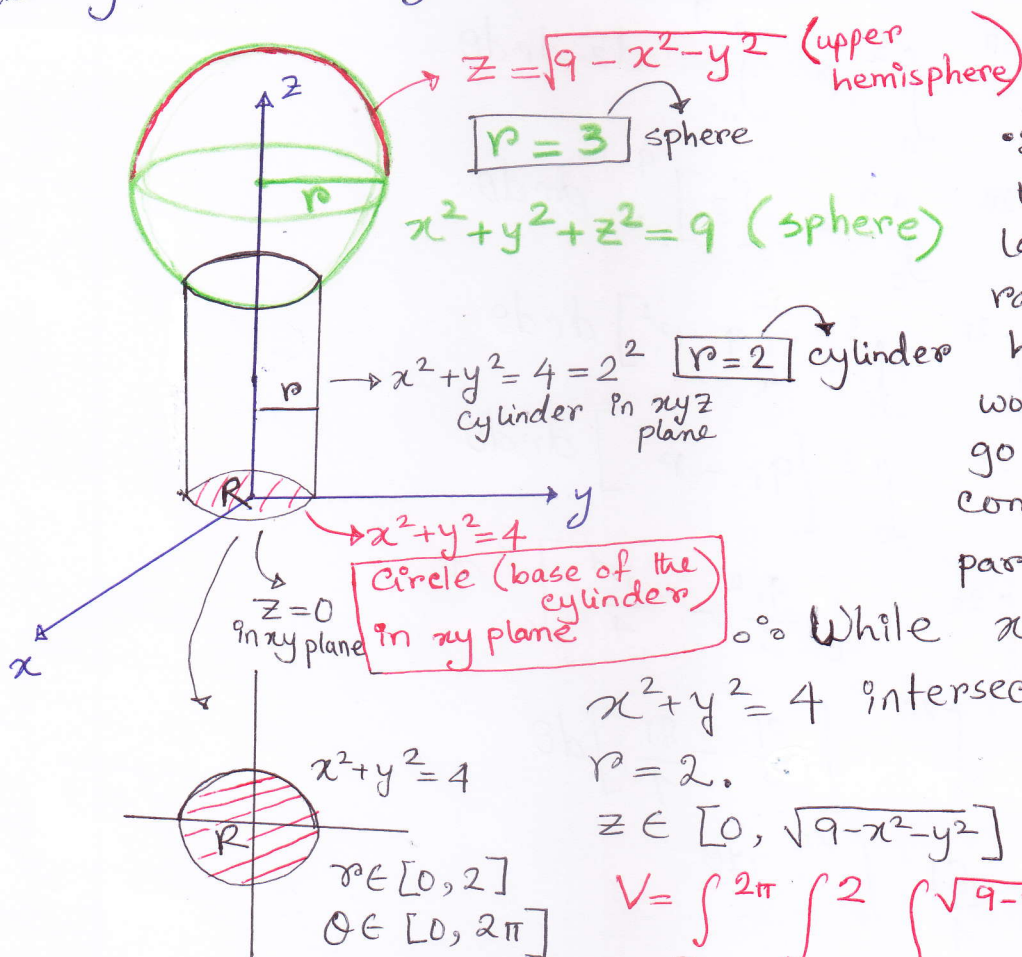 z
z = √9 - x² - y² (upper hemisphere)
r = 3 sphere
r
x² + y² + z² = 9 (sphere)
r
→ x² + y² = 4 = 2²
cylinder in xyz
plane
r = 2 cylinder
wo
go
con
par
R
y
x² + y² = 4
Circle (base of the
cylinder)
in xy plane
z = 0
in xy plane
x
∴ While x
x² + y² = 4 intersec
r = 2.
z ∈ [0, √9-x²-y²]
V = ∫ 2π ∫ 2 ∫ √9-
x² + y² = 4
R
r ∈ [0, 2]
θ ∈ [0, 2π]